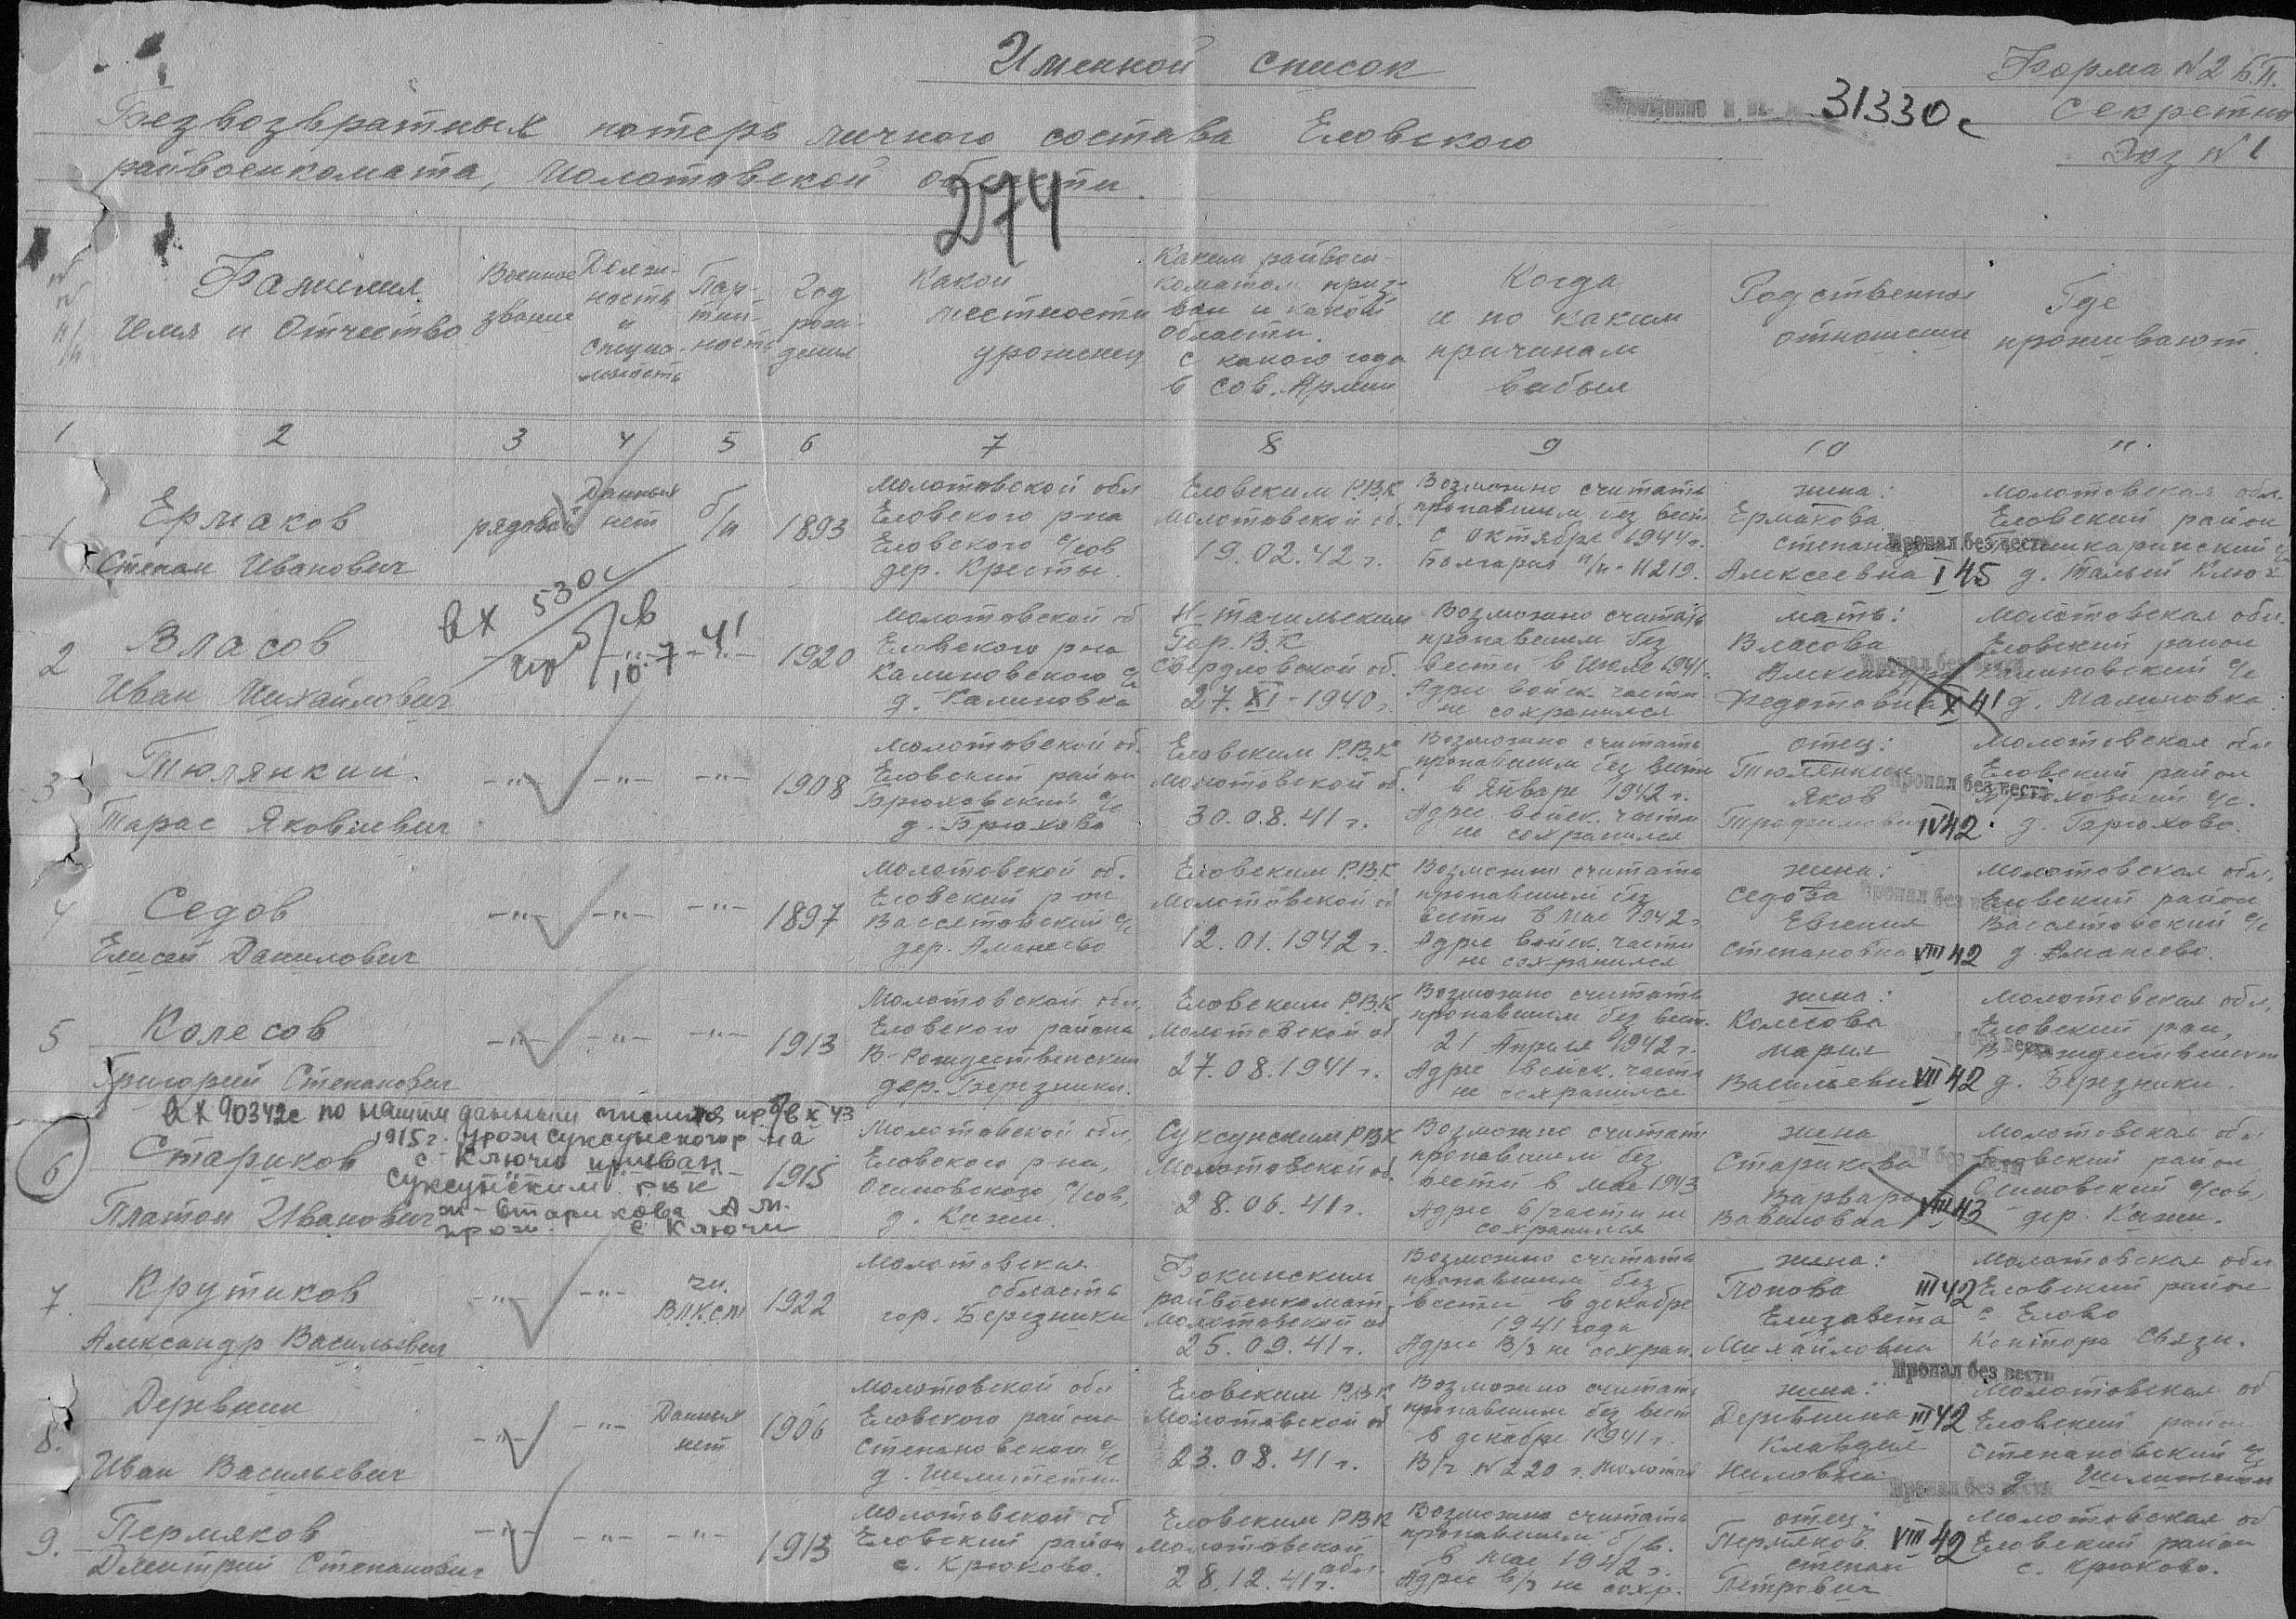 Именной список
Форма №2 Б.П.
Секретно
Экз №1
31330с
Безвозвратных потерь личного состава Еловского
райвоенкомата, Молотовской области.
274
№ № п/п
Фамилия
Имя и Отчество
Военное
звание
Долж-
ность
и
специа-
льность
Пар-
тий-
ность
Год
рож-
дения
Какой
местности
уроженец
Каким райвоен-
коматом приз-
ван и какой
области.
с какого года
в Сов. Армии
Когда
и по каким
причинам
выбыл
Родственное
отношение
Где
проживают.
1 2 3 4 5 6 7 8 9 10 11.
1
Ермаков
Степан Иванович
рядовой
Данных
нет
б/п
1893
Молотовской обл
Еловского р-на
Еловского с/сов
дер. Кресты
Еловским Р.В.К
Молотовской об.
19.02.42 г.
Возможно считать
пропавшим без вест
с октября 1944 г.
Болгария п/п-11219.
жена:
Ермакова
Степанида
Алексеевна
Пропал без вести
I 45
Молотовская обл.
Еловский район
д. Малый Ключ
2
Власов
Иван Михайлович
вх 530с
10.7.41
-"-
1920
Молотовской об
Еловского р-на
Калиновского с/с
д. Калиновка
Н-тагильским
Гор.В.К
Свердловской об.
27.XI-1940 г.
Возможно считать
пропавшим без
вести в Июле 1941 г.
Адрес войск. части
не сохранился
мать:
Власова
Александра
Федотовна
Пропал без вести
X 41
Молотовская обл.
Еловский район
Калиновский с/с
д. Малиновка.
3
Тюлянкин.
Тарас Яковлевич
-"- -"- -"-
1908
Молотовской об.
Еловский район
Брюховский с/с
д. Брюхово
Еловским Р.В.К
Молотовской об.
30.08.41 г.
Возможно считать
пропавшим без вести
в Январе 1942 г.
Адрес войск. части
не сохранился
отец:
Тюлянкин
Яков
Трофимович
Пропал без вести
IV 42
Молотовская обл
Еловский район
Брюховский с/с.
д. Брюхово.
4
Седов
Елисей Данилович
-"- -"- -"-
1897
Молотовской об.
Еловский р-он
Вассятовский с/с
дер. Аманеево
Еловским Р.В.К
Молотовской об
12.01.1942 г.
Возможно считать
пропавшим без
вести в Мае 1942 г
Адрес войск. части
не сохранился
жена:
Седова
Евгения
Степановна
Пропал без вести
VIII 42
Молотовская обл,
Еловский район
Вассятовский с/с
д. Аманеево.
5
Колесов
Григорий Степанович
-"- -"- -"-
1913
Молотовской обл,
Еловского района
В-Рождественский
дер. Березники.
Еловским Р.В.К
Молотовской об
27.08.1941 г.
Возможно считать
пропавшим без вест.
21 Апреля 1942 г.
Адрес войск. части
не сохранился
жена:
Колесова
Мария
Васильевна
без вести
VII 42
Молотовская обл,
Еловский рай,
В-Рождественский
д. Березники.
вх 90342с по нашим данным числится пр. б/в X 43
1915 г. урож Суксунского р-на
с. Ключи призван
Суксунским РВК
ж-Старикова А.М.
прож. с Ключи
6
Стариков
Платон Иванович
1915
Молотовской обл,
Еловского р-на,
Осиновского с/сов,
Суксунским РВК
Молотовской об.
28.06.41 г.
Возможно считать
пропавшим без
вести в мае 1943
Адрес в/части не
сохранился
жена
Старикова
Варвара
Вавиловна
без вести
VIII 43
Молотовская обл
Еловский район
Осиновский с/сов,
7.
Крутиков
Александр Васильевич
-"- -"-
чл.
ВЛКСМ
1922
Молотовская
область
гор. Березники
райвоенкомат.
Молотовской об
25.09.41 г.
Возможно считать
пропавшим без
вести в декабре
1941 года
Адрес В/ч не сохран.
жена:
Попова
Елизавета
Михайловна
III 42
Молотовская обл
Еловский район
с Елово
Контора Связи.
Пропал без вести
8.
Деревнин
Иван Васильевич
-"- -"-
Данных
нет
1906
Молотовской обл
Еловского района
Степановского с/с
Еловским Р.В.К
Молотовской об
23.08.41 г.
Возможно считать
пропавшим без вест
в декабре 1941 г.
В/ч №220 г. Молотов
жена:
Деревнина
Клавдия
Ниловна
III 42
Молотовская об
Еловский район
Степановский с/с
Пропал без вести
9.
Пермяков
Дмитрий Степанович
-"- -"- -"-
1913
Молотовской об
Еловский район
с. Крюково.
Еловским Р.В.К
Молотовской
обл.
28.12.41 г.
Возможно считать
пропавшим б/в.
в мае 1942 г.
Адрес в/ч не сохр.
отец:
Пермяков
Степан
Петрович
VIII 42
Молотовская об
Еловский район
с. Крюково.